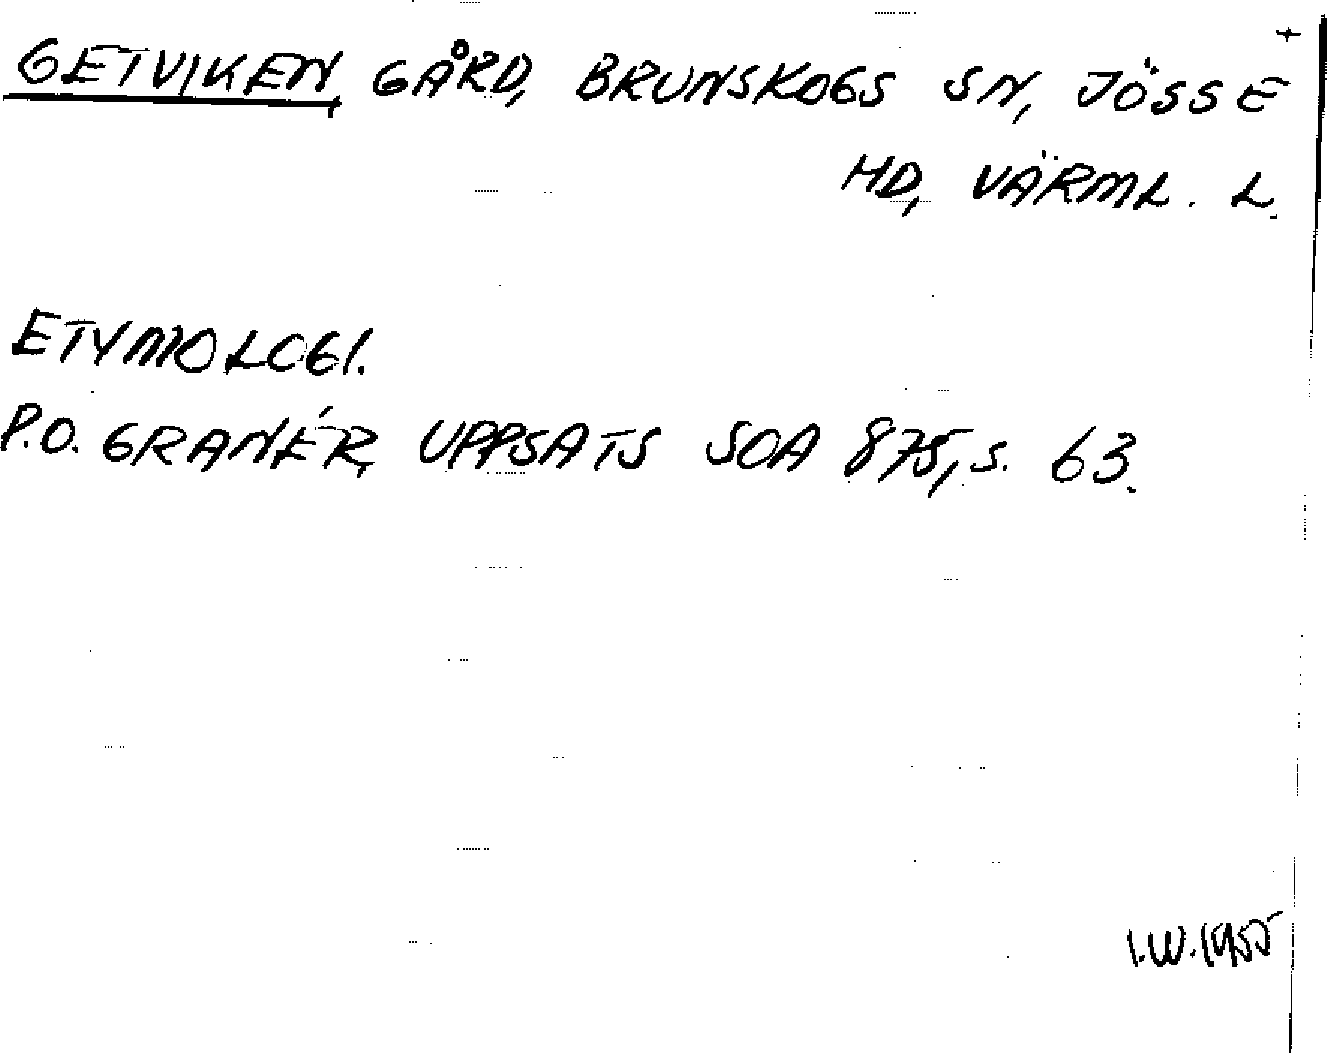 +
GETVIKEN, GÅRD, BRUNSKOGS SN, JÖSSE
HD, VÄRML. L.
ETYMOLOGI.
P.O. GRANÉR, UPPSATS SOA 875, S. 63.
I.W. 1955